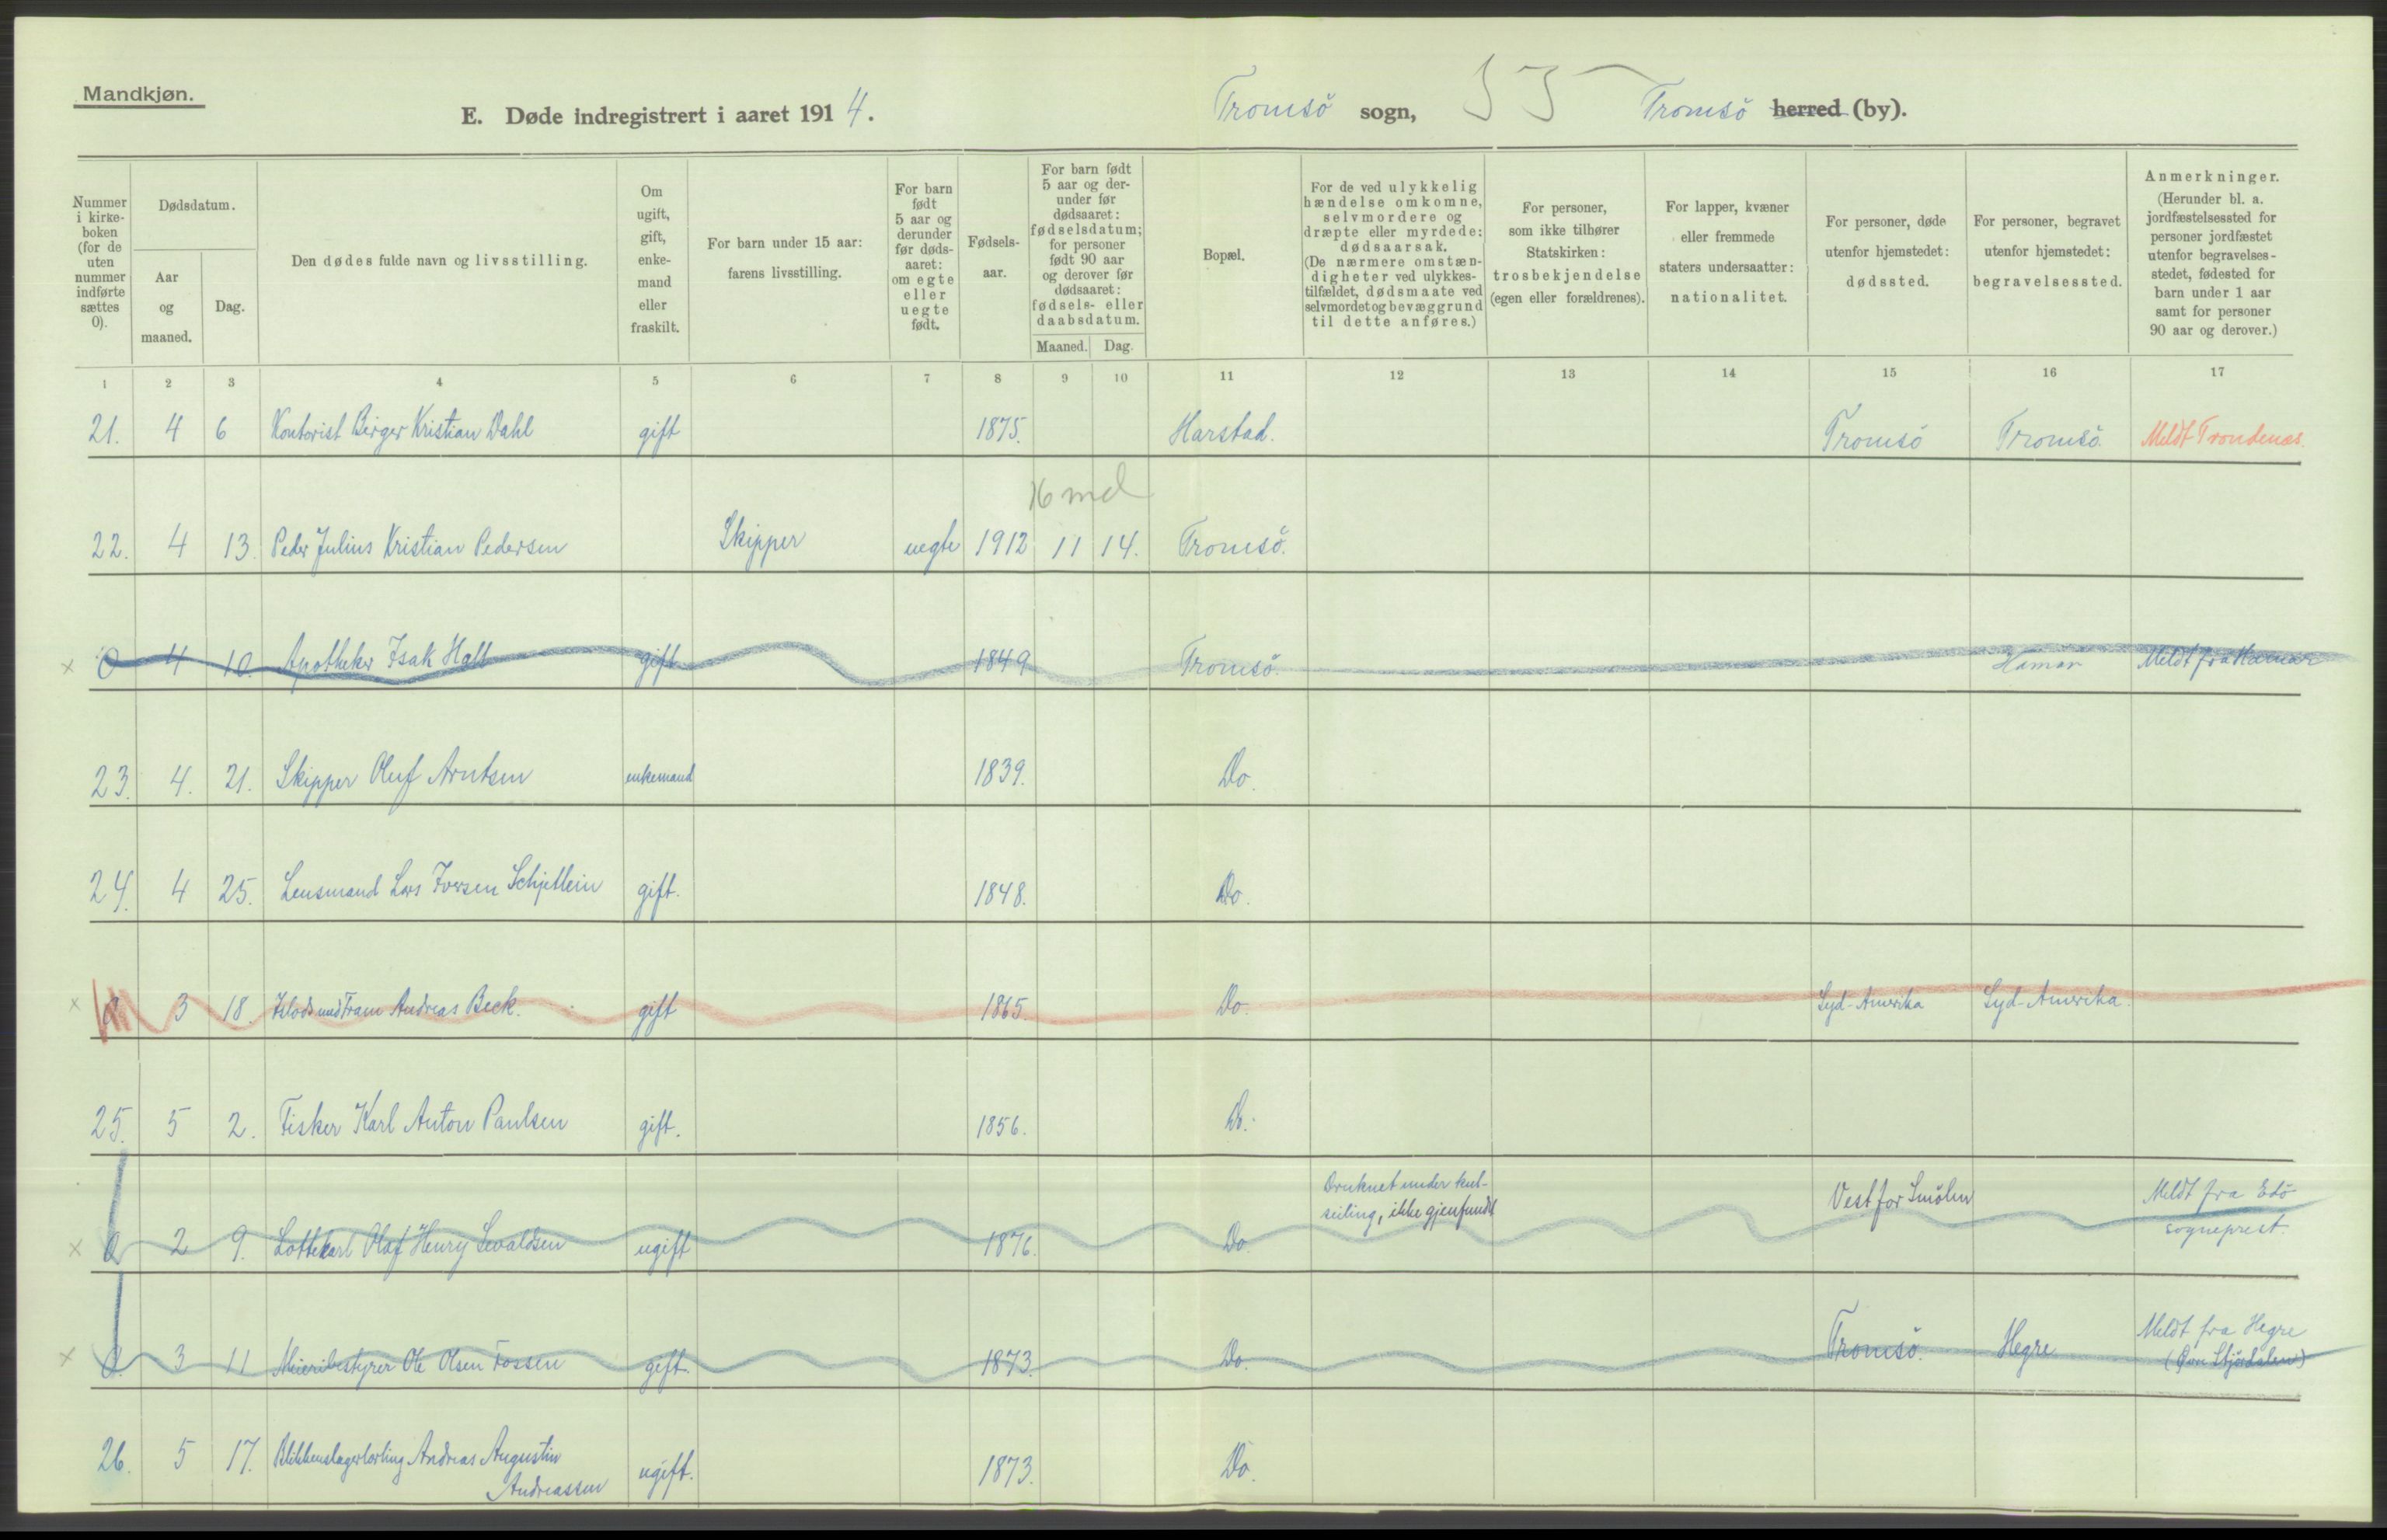 Mandkjøn.
E. Døde indregistrert i aaret 1914.
Tromsö sogn, Tromsö herred (by).
Nummer i kirkeboken (for de uten nummer indførte sættes 0).
Dødsdatum.
Aar og maaned.
Dag.
Den dødes fulde navn og livsstilling.
Om ugift, gift, enkemand eller fraskilt.
For barn under 15 aar: farens livsstilling.
For barn født 5 aar og derunder før dødsaaret: om egte eller uegte født.
Fødselsaar.
For barn født 5 aar og derunder før dødsaaret: fødselsdatum; for personer født 90 aar og derover før dødsaaret: fødsels- eller daabsdatum.
Maaned. Dag.
Bopæl.
For de ved ulykkelig hændelse omkomne, selvmordere og dræpte eller myrdede: dødsaarsak. (De nærmere omstændigheter ved ulykkestilfældet, dødsmaate ved selvmordet og bevæggrund til dette anføres.)
For personer, som ikke tilhører Statskirken: trosbekjendelse (egen eller forældrenes).
For lapper, kvæner eller fremmede staters undersaatter: nationalitet.
For personer, døde utenfor hjemstedet: dødssted.
For personer, begravet utenfor hjemstedet: begravelsessted.
Anmerkninger. (Herunder bl. a. jordfæstelsessted for personer jordfæstet utenfor begravelsesstedet, fødested for barn under 1 aar samt for personer 90 aar og derover.)
1 2 3 4 5 6 7 8 9 10 11 12 13 14 15 16 17
21. 4 6 Kontorist Birger Kristian Dahl gift 1875. Harstad. Tromsö Tromsö. Meldt Trondenæs.
16 md
22. 4 13. Peder Julius Kristian Pedersen Skipper uegte 1912 11 14. Tromsö.
x 0 4 10. Apotheker Isak Hall gift 1849 Tromsö. Hamar Meldt fra Hamar
23. 4. 21. Skipper Oluf Arntsen enkemand 1839. Do.
24. 4 25. Lensmand Lars Iversen Schjetlein gift. 1848. Do.
x 0 3 18. Islods med Fram Andreas Beck. gift 1865. Do. Syd-Amerika Syd-Amerika.
25. 5 2. Fisker Karl Anton Paulsen gift. 1856. Do.
x 0 2 9. Lottekarl Olaf Henry Sevaldsen ugift 1876. Do. Druknet under kulseiling, ikke gjenfundet Vest for Smölen Meldt fra Edö sogneprest.
x 0. 3 11 Meieribestyrer Ole Olsen Fossen gift. 1873. Do. Tromsö. Hegre Meldt fra Hegre
(Övre Stjördalen)
26. 5 17. Blikkenslagerlærling Andreas Augustin
Andreassen ugift. 1873. Do.